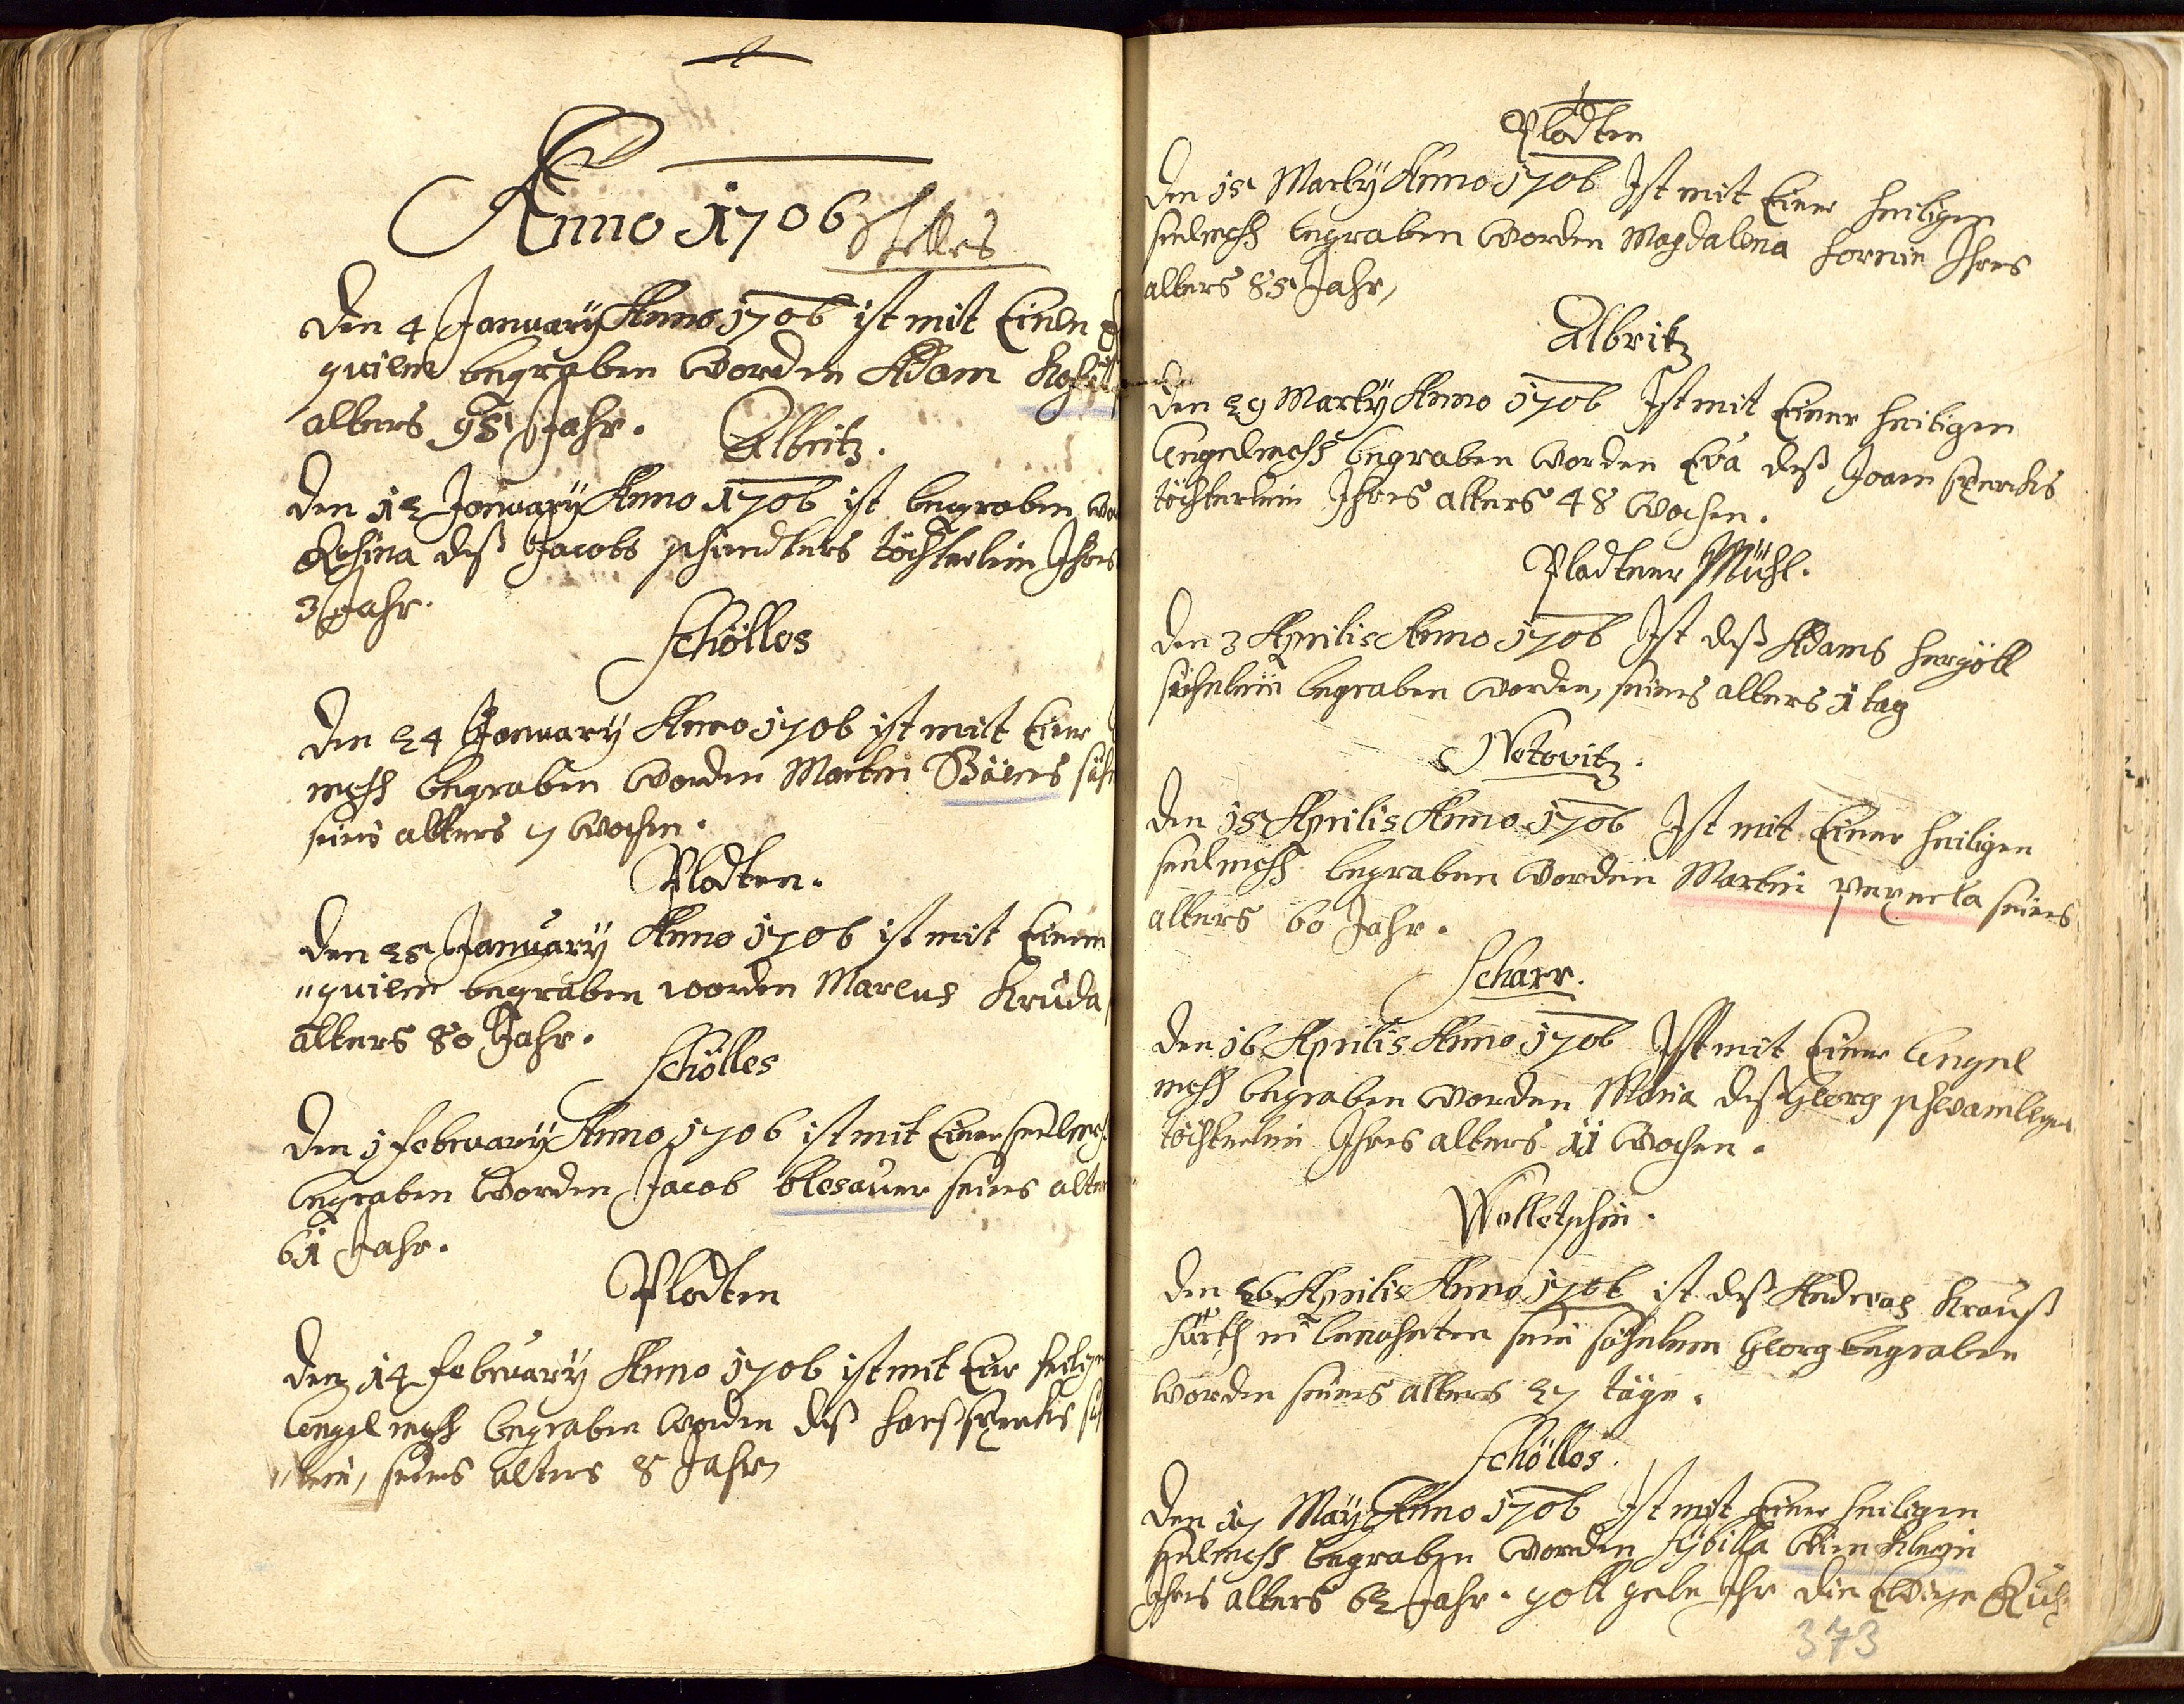 Anno 1706
Schelles
Den 4 January Anno 1706 ist mit Einen
quilm begraben worden Adam
alters 95 Jahr.
Albritz.
Den 12 January Anno 1706 ist begraben
Rosina deß Jacobs schindlers töchterlein Ihres
3 Jahr.
Schölles
Den 24 January Anno 1706 ist mit Einer
mess begraben worden Martin
seines alters 7 wochen.
Plodten.
Den 25 January Anno 1706 ist mit Einem
"quilm begraben worden Marcus Kruda
alters 80 Jahr.
Schölles
Den 1 february Anno 1706 ist mit Einer seelmess
begraben worden Jacob blesauer seines alters
61 Jahr.
Plodten
Den 14 february Anno 1706 ist mit Einr heiligen
Engelmess begraben worden deß
"lein, seines alters 8 Jahr,
Plodten
Den 15 Marty Anno 1706 Ist mit Einer heiligen
seelmess begraben worden Magdalena hornin Ihres
alters 85 Jahr,
Albritz
Den 29 Marty Anno 1706 Ist mit Einer heiligen
Engelmess begraben worden Eva deß Joann
töchterlein Ihres alters 48 wochen.
Plodtner Mühl.
Den 3 Aprilis Anno 1706 Ist deß Adams hergött
söhnlein begraben worden, seines alters 1 tag
Netovitz.
Den 15 Aprilis Anno 1706 Ist mit Einer heiligen
seelmess begraben worden Martin seines
alters 60 Jahr.
Scharr.
Den 16 Aprilis Anno 1706 Ist mit Einer Engel
mess begraben worden Maria deß Georg
töchterlein Ihres alters 11 wochen.
Wolletschin.
Den 26 Aprilis Anno 1706 ist deß Andreas Krauß
sein söhnlein Georg begraben
worden seines alters 27 täge.
Schölles.
Den 17 May Anno 1706 Ist mit Einer heiligen
seelmess begraben worden Sybilla
Ihres alters 62 Jahr. gott gebe Ihr die Ewige Ruh
373